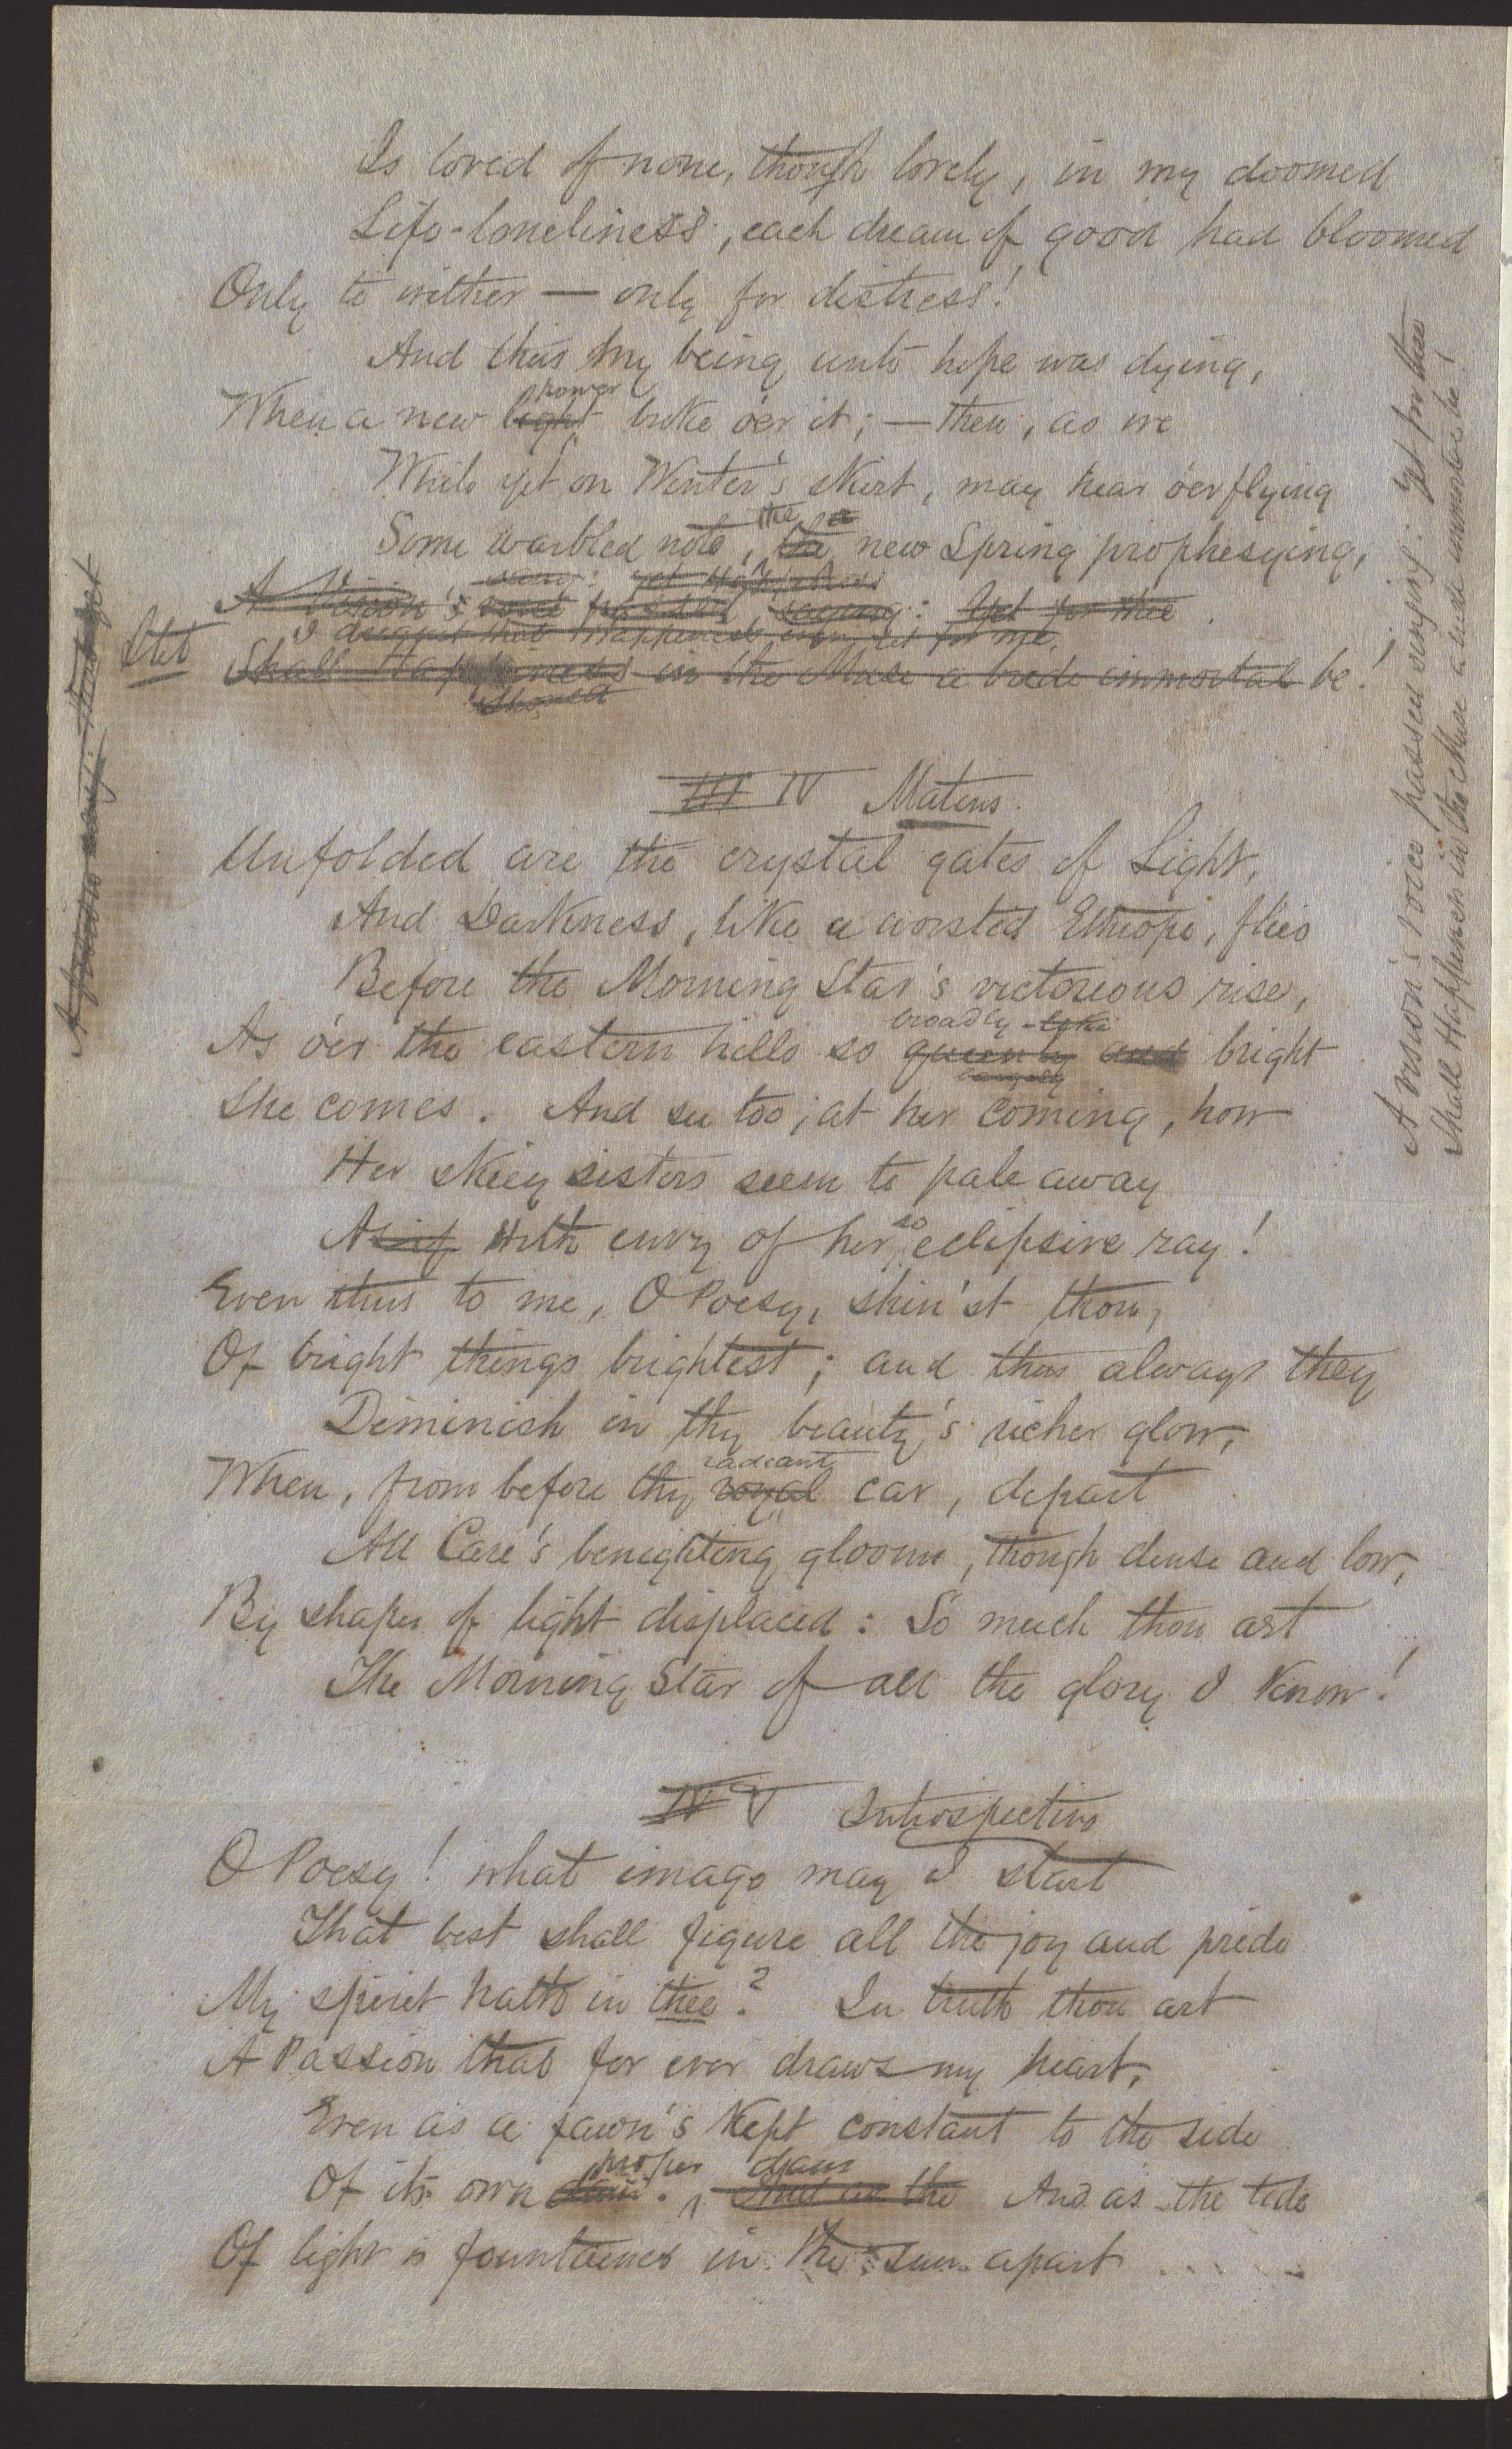 Is loved of none, though lovely, in my doomed
Life-loneliness, each dream of good had bloomed
Only to wither — only for distress!
And thus my being unto hope was dying,
power
When a new light broke o'er it; — then, as we
While yet on Winter's skirt, may hear o'erflying
the a
Some warbled note, the new Spring prophesying,
sang: yet Happiness
A Vision's voice passed, saying: Yet for thee
I dreamt that Happiness even yet for me
Stet
Shall Happiness in the Muse a bride immortal be!
Should
A vision's voice passed singing: Yet for thee
Shall Happiness in the Muse a bride immortal be!
III IV Matins.
Unfolded are the crystal gates of Light,
And Darkness, like a worsted Ethiope, flies
Before the Morning Star's victorious rise,
broadly
As o'er the eastern hills so queenly and bright
She comes. And see too, at her coming, how
Her skiey sisters seem to pale away
so
As if With envy of her eclipsive ray!
Even thus to me, O Poesy, shin'st thou,
Of bright things brightest; and thus always they
Diminish in thy beauty's richer glow,
radiant
When, from before thy royal car, depart
All Care's benighting glooms, though dense and low,
By shapes of light displaced: So much thou art
The Morning Star of all the glory I know!
IV V Introspective
O Poesy! what image may I start
That best shall figure all the joy and pride
My spirit hath in thee? In truth thou art
A Passion that for ever draws my heart,
Even as a fawn's kept constant to the side
proper dam
Of its own dam. And as the And as the tide
Of light is fountained in the sun apart . . . . .